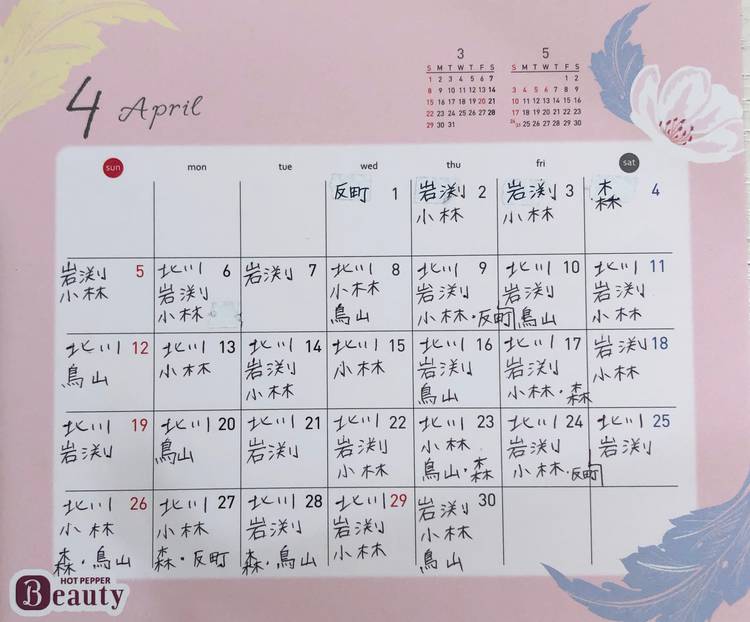 4 April
3
S M T W T F S
1 2 3 4 5 6 7
8 9 10 11 12 13 14
15 16 17 18 19 20 21
22 23 24 25 26 27 28
29 30 31
5
S M T W T F S
1 2
3 4 5 6 7 8 9
10 11 12 13 14 15 16
17 18 19 20 21 22 23
24 31 25 26 27 28 29 30
sun mon tue wed thu fri sat
反町 1
岩渕 2
小林
岩渕 3
小林
森 4
岩渕 5
小林
北川 6
岩渕
小林
岩渕 7
北川 8
小林
鳥山
北川 9
岩渕
小林・反町
北川 10
岩渕
鳥山
北川 11
岩渕
小林
北川 12
鳥山
北川 13
小林
北川 14
岩渕
小林
北川 15
小林
北川 16
岩渕
鳥山
北川 17
岩渕
小林・森
岩渕 18
小林
北川 19
岩渕
北川 20
鳥山
北川 21
岩渕
北川 22
岩渕
小林
北川 23
小林
鳥山・森
北川 24
岩渕
小林・反町
北川 25
岩渕
北川 26
小林
森・鳥山
北川 27
小林
森・反町
北川 28
岩渕
森・鳥山
北川 29
岩渕
小林
岩渕 30
小林
鳥山
HOT PEPPER
Beauty